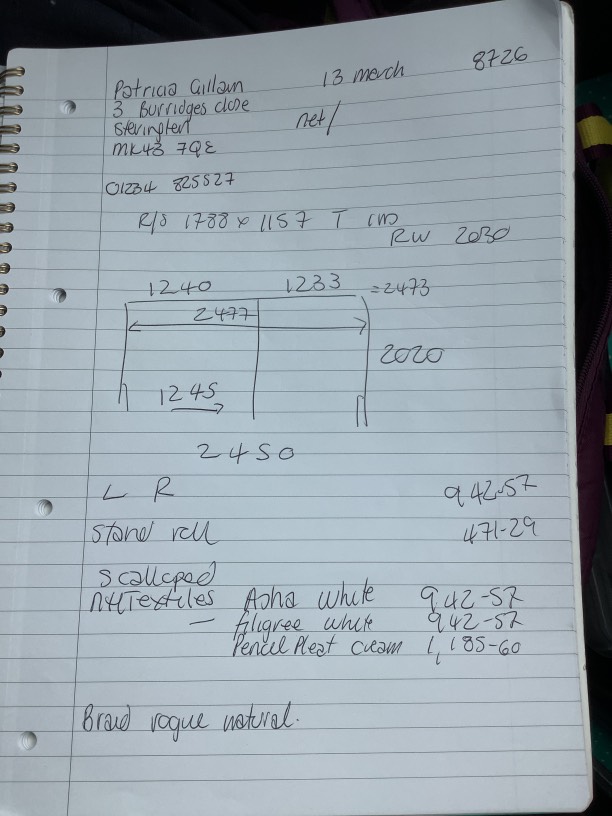 Patricia Gillam 13 march 8726
3 Burridges close
Stevington net/
MK43 7QE
01234 825527
R/S 1788 x 1157 T
RW 2030
1240 1233 = 2473
2477
2020
1245
2450
L R 942-57
Stand roll 471-29
Scalloped
Textiles Asha white 942-57
— filigree white 942-57
Pencil Pleat cream 1,185-60
Braid vogue natural.